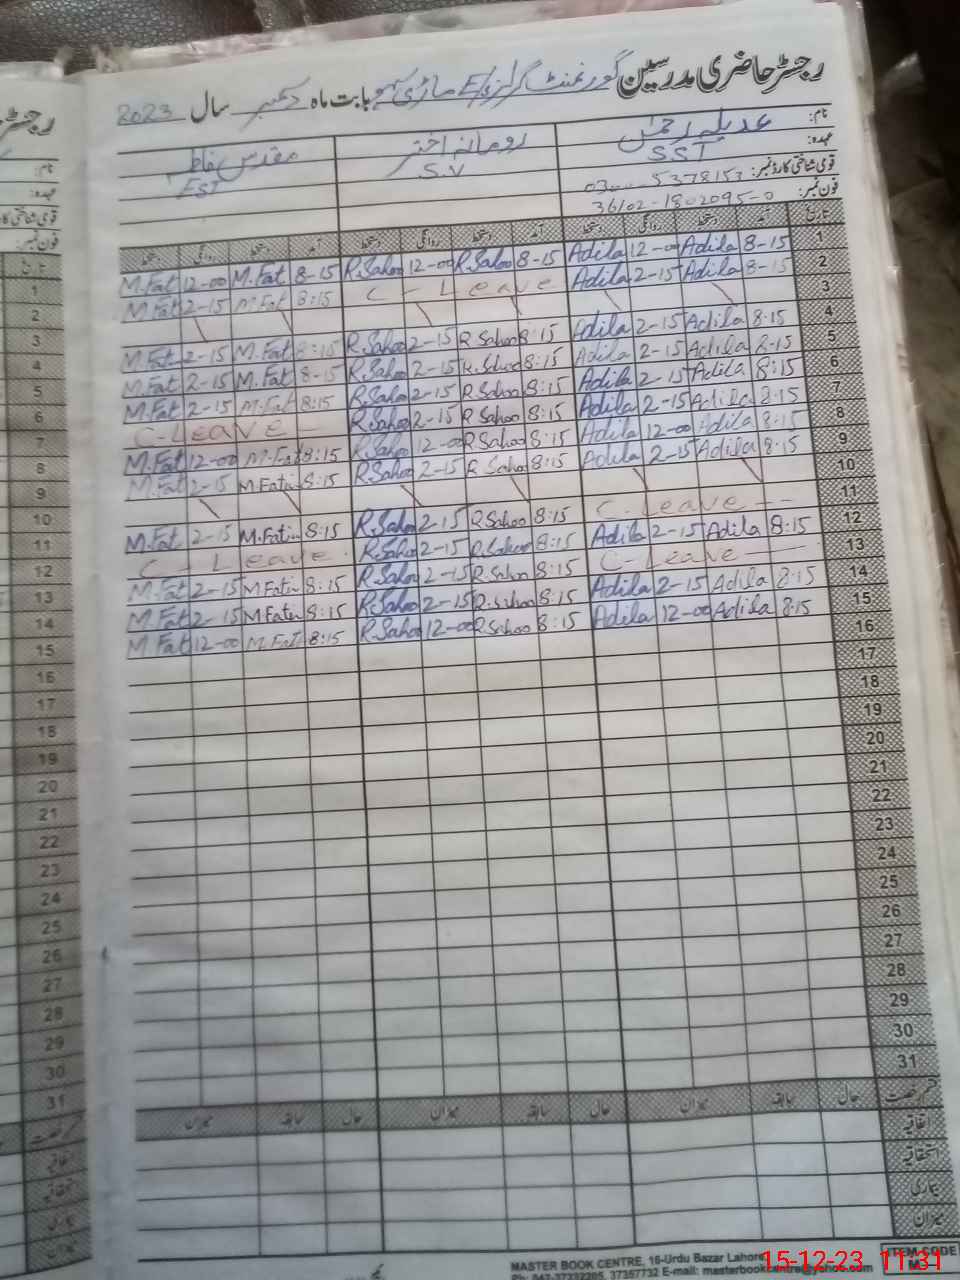 رجسٹر حاضری مدرسین گورنمنٹ گرلز بابت ماہ دسمبر سال 2023
نام: عدیلہ رحمٰن رومانہ اختر مقدس فاطمہ
عہدہ: SST S.V EST
قومی شناختی کارڈ نمبر: 5378153
فون نمبر: 36102-1802095-0
تاریخ آمد دستخط روانگی دستخط آمد دستخط روانگی دستخط آمد دستخط روانگی دستخط
M.Fat 12-00 M.Fat 8-15 R.Sahoo 12-00 R.Sahoo 8-15 Adila 12-00 Adila 8-15 1
M.Fat 2-15 M.Fat 8:15 C - Leave Adila 2-15 Adila 8-15 2
3
M.Fat 2-15 M.Fat 8:15 R.Sahoo 2-15 R.Sahoo 8:15 Adila 2-15 Adila 8:15 4
M.Fat 2-15 M.Fat 8-15 R.Sahoo 2-15 R.Sahoo 8:15 Adila 2-15 Adila 8-15 5
M.Fat 2-15 M.Fat 8:15 R.Sahoo 2-15 R.Sahoo 8:15 Adila 2-15 Adila 8:15 6
C-Leave - R.Sahoo 2-15 R.Sahoo 8:15 Adila 2-15 Adila 8:15 7
M.Fat 12-00 M.Fat 8:15 R.Sahoo 12-00 R.Sahoo 8:15 Adila 12-00 Adila 8:15 8
M.Fat 2-15 M.Fatim 8:15 R.Sahoo 2-15 R.Sahoo 8:15 Adila 2-15 Adila 8:15 9
10
M.Fat 2-15 M.Fatim 8:15 R.Sahoo 2-15 R.Sahoo 8:15 C-Leave-- 11
C - Leave R.Sahoo 2-15 R.Sahoo 8:15 Adila 2-15 Adila 8:15 12
M.Fat 2-15 M.Fatim 8:15 R.Sahoo 2-15 R.Sahoo 8:15 C-Leave 13
M.Fat 2-15 M.Fatim 8:15 R.Sahoo 2-15 R.Sahoo 8:15 Adila 2-15 Adila 8:15 14
M.Fat 12-00 M.Fat 8:15 R.Sahoo 12-00 R.Sahoo 8:15 Adila 12-00 Adila 8:15 15
16
17
18
19
20
21
22
23
24
25
26
27
28
29
30
31
قسم رخصت حال سابقہ میزان حال سابقہ میزان حال سابقہ میزان
اتفاقیہ
استحقاقیہ
بیماری
میزان
MASTER BOOK CENTRE, 16-Urdu Bazar Lahore
Ph: 042-37232265, 37357732 E-mail: masterbookcentre@yahoo.com
ITEM CODE
15-12-23 11:31
رجسٹر
نام:
عہدہ:
قومی شناختی کارڈ
فون نمبر:
تاریخ
1
2
3
4
5
6
7
8
9
10
11
12
13
14
15
16
17
18
19
20
21
22
23
24
25
26
27
28
29
30
31
قسم رخصت
اتفاقیہ
استحقاقیہ
بیماری
میزان